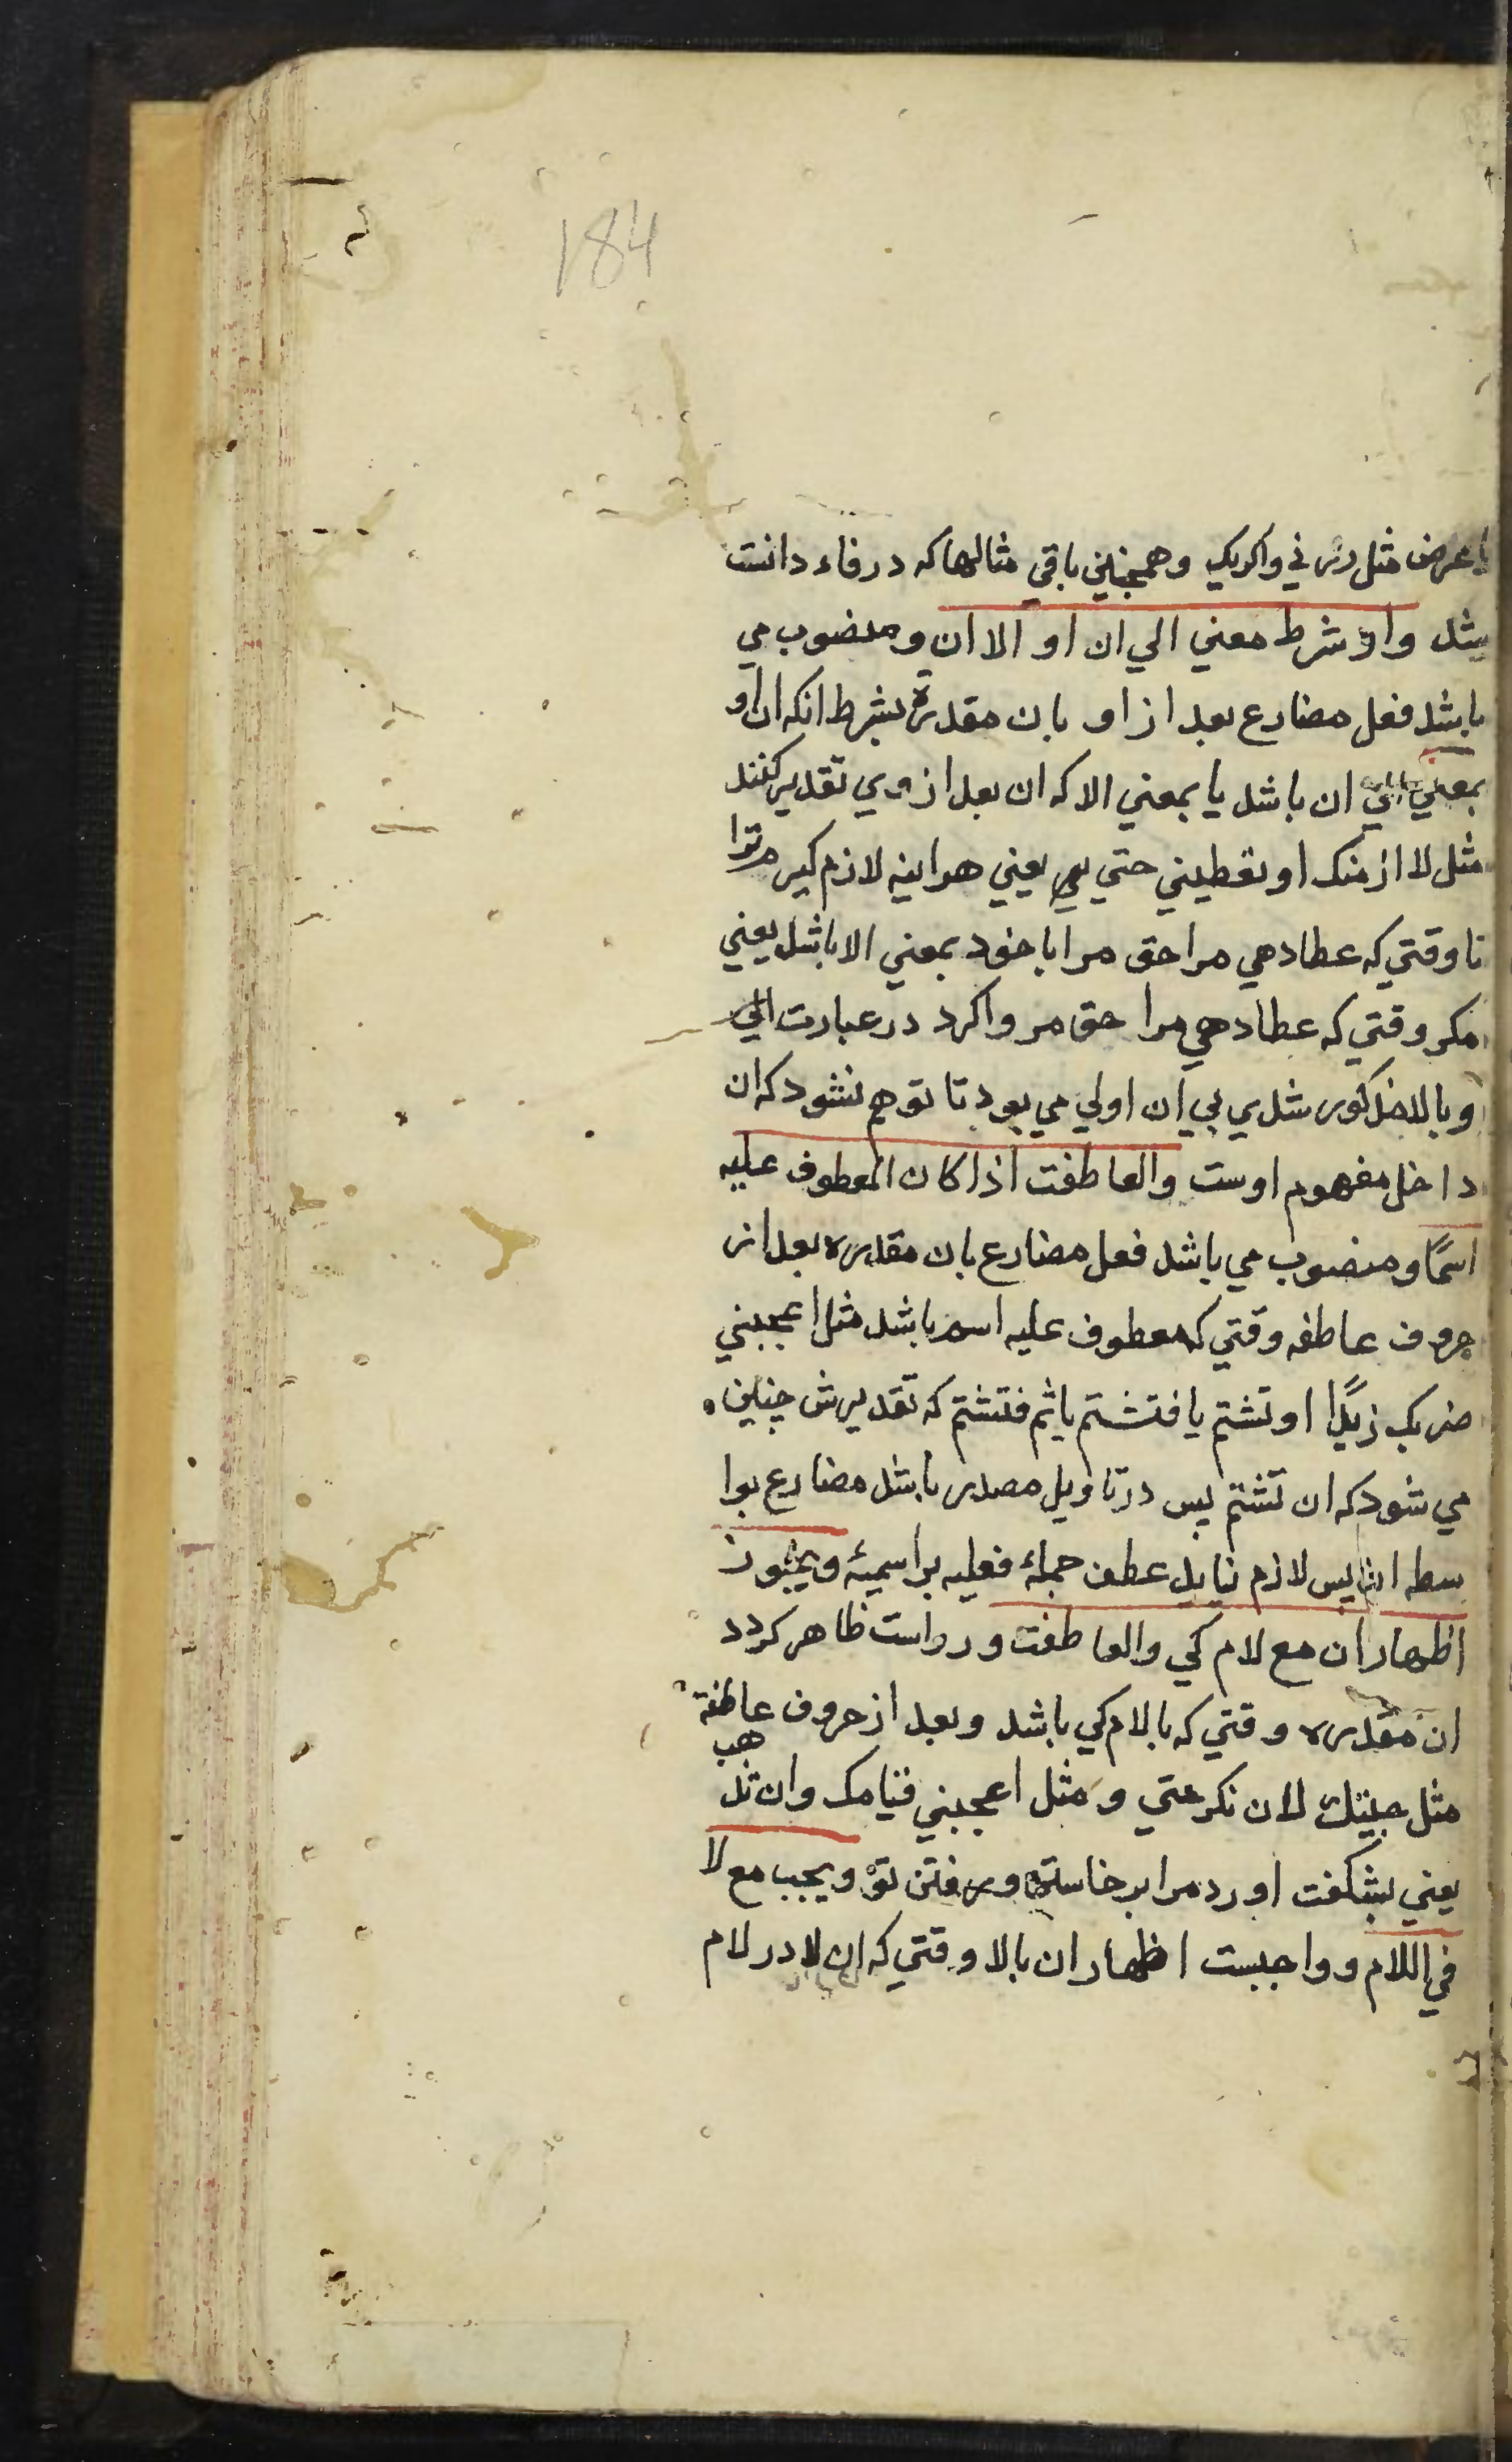 184
يا عرض مثل زرني واكرمك وهمچنين باقي مثالها كه در فاء دانست
يثد واو شرط معني الي ان او الا ان و منصوب مي
باشد فعل مضارع بعد از او بان مقدرة بشرط انكه ان او
بمعني الي ان باشد يا بمعني الا كه ان بعد از وي تقدير كنند
مثل لا ازمنك او تعطيني حتي يعني هراينه لازم كيرم ترا
تا وقتي كه عطا دهي مرا حق مرا يا خود بمعني الا باشد يعني
مكر وقتي كه عطا دهي مرا حق مر واكرد در عبارت الي
و يا الا مذكور شدي بي ان اولي مي بود تا توهم نشود كه ان
داخل مفهوم اوست والعاطفت اذا كان المعطوف عليه
اسمًا و منصوب مي باشد فعل مضارع بان مقدره بعد از
حروف عاطفه وقتي كه معطوف عليه اسم باشد مثل اعجبني
ضربك زيدًا او تشتم يا فتشتم يا ثم فتشتم كه تقديرش چنين
مي شود كه ان تشتم پس در تاويل مصدر باشد مضارع بوا
سطه ان پس لازم نيايد عطف جملهٔ فعليه بر اسميهٔ ويجوز
اظهار ان مع لام كي والعاطفت و رواست ظاهر كردد
ان مقدره وقتي كه بالام كي باشد و بعد از حروف عاطفة
مثل جيتك لان تكرمتي و مثل اعجبني قيامك وان تذهب
يعني بشكفت اورد مرا برخاستن ورفتن تو ويجب مع لا
في اللام و واجبست اظهار ان بالا وقتي كه ان لا در لام